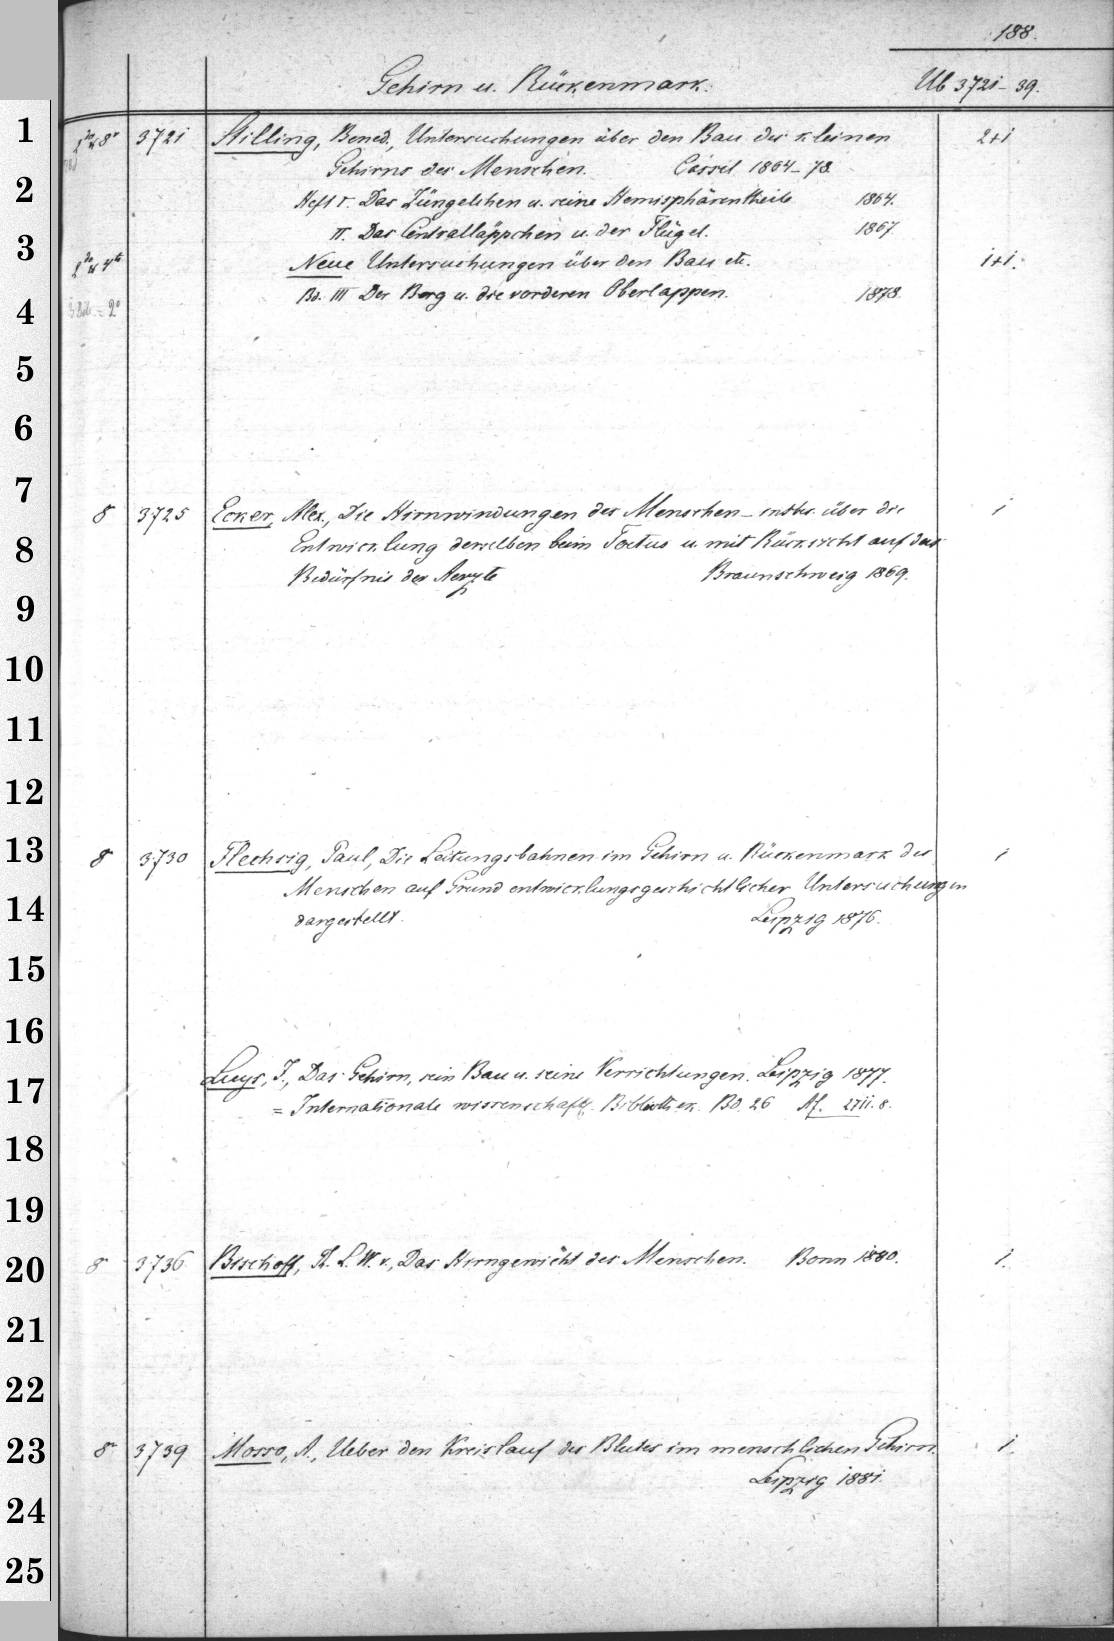 188.
Gehirn u. Rückenmark.
Ub 3721-39.
1
8° 3721 Stilling, Bened., Untersuchungen über den Bau des kleinen 2+1
Gehirns des Menschen. Cassel 1864-78
2
Heft I. Das Züngelchen u. seine Hemisphärentheile 1864.
II. Das Centralläppchen u. der Flügel. 1867
3
4° Neue Untersuchungen über den Bau etc. 1+1.
Bd. III Der Berg u. die vorderen Oberlappen. 1878.
4
2°
5
6
7
8 3725 Ecker, Alex., Die Hirnwindungen des Menschen - über die 1
8
Entwicklung derselben beim Foetus u. mit Rücksicht auf das
Bedürfnis der Aerzte Braunschweig 1869.
9
10
11
12
13
8 3730 Flechsig, Paul, Die Leitungsbahnen im Gehirn u. Rückenmark des 1
Menschen auf Grund entwicklungsgeschichtlicher Untersuchungen
14
dargestellt. Leipzig 1876.
15
16
Luys, J., Das Gehirn, sein Bau u. seine Verrichtungen. Leipzig 1877.
17
= Internationale wissenschaftl. Bibliothek. Bd. 26 Af. 2711. 8.
18
19
20
8 3736 Bischoff, Th. L. W. v., Das Hirngewicht des Menschen. Bonn 1880. 1.
21
22
23
8 3739 Mosso, A., Ueber den Kreislauf des Blutes im menschlichen Gehirn. 1.
Leipzig 1881.
24
25